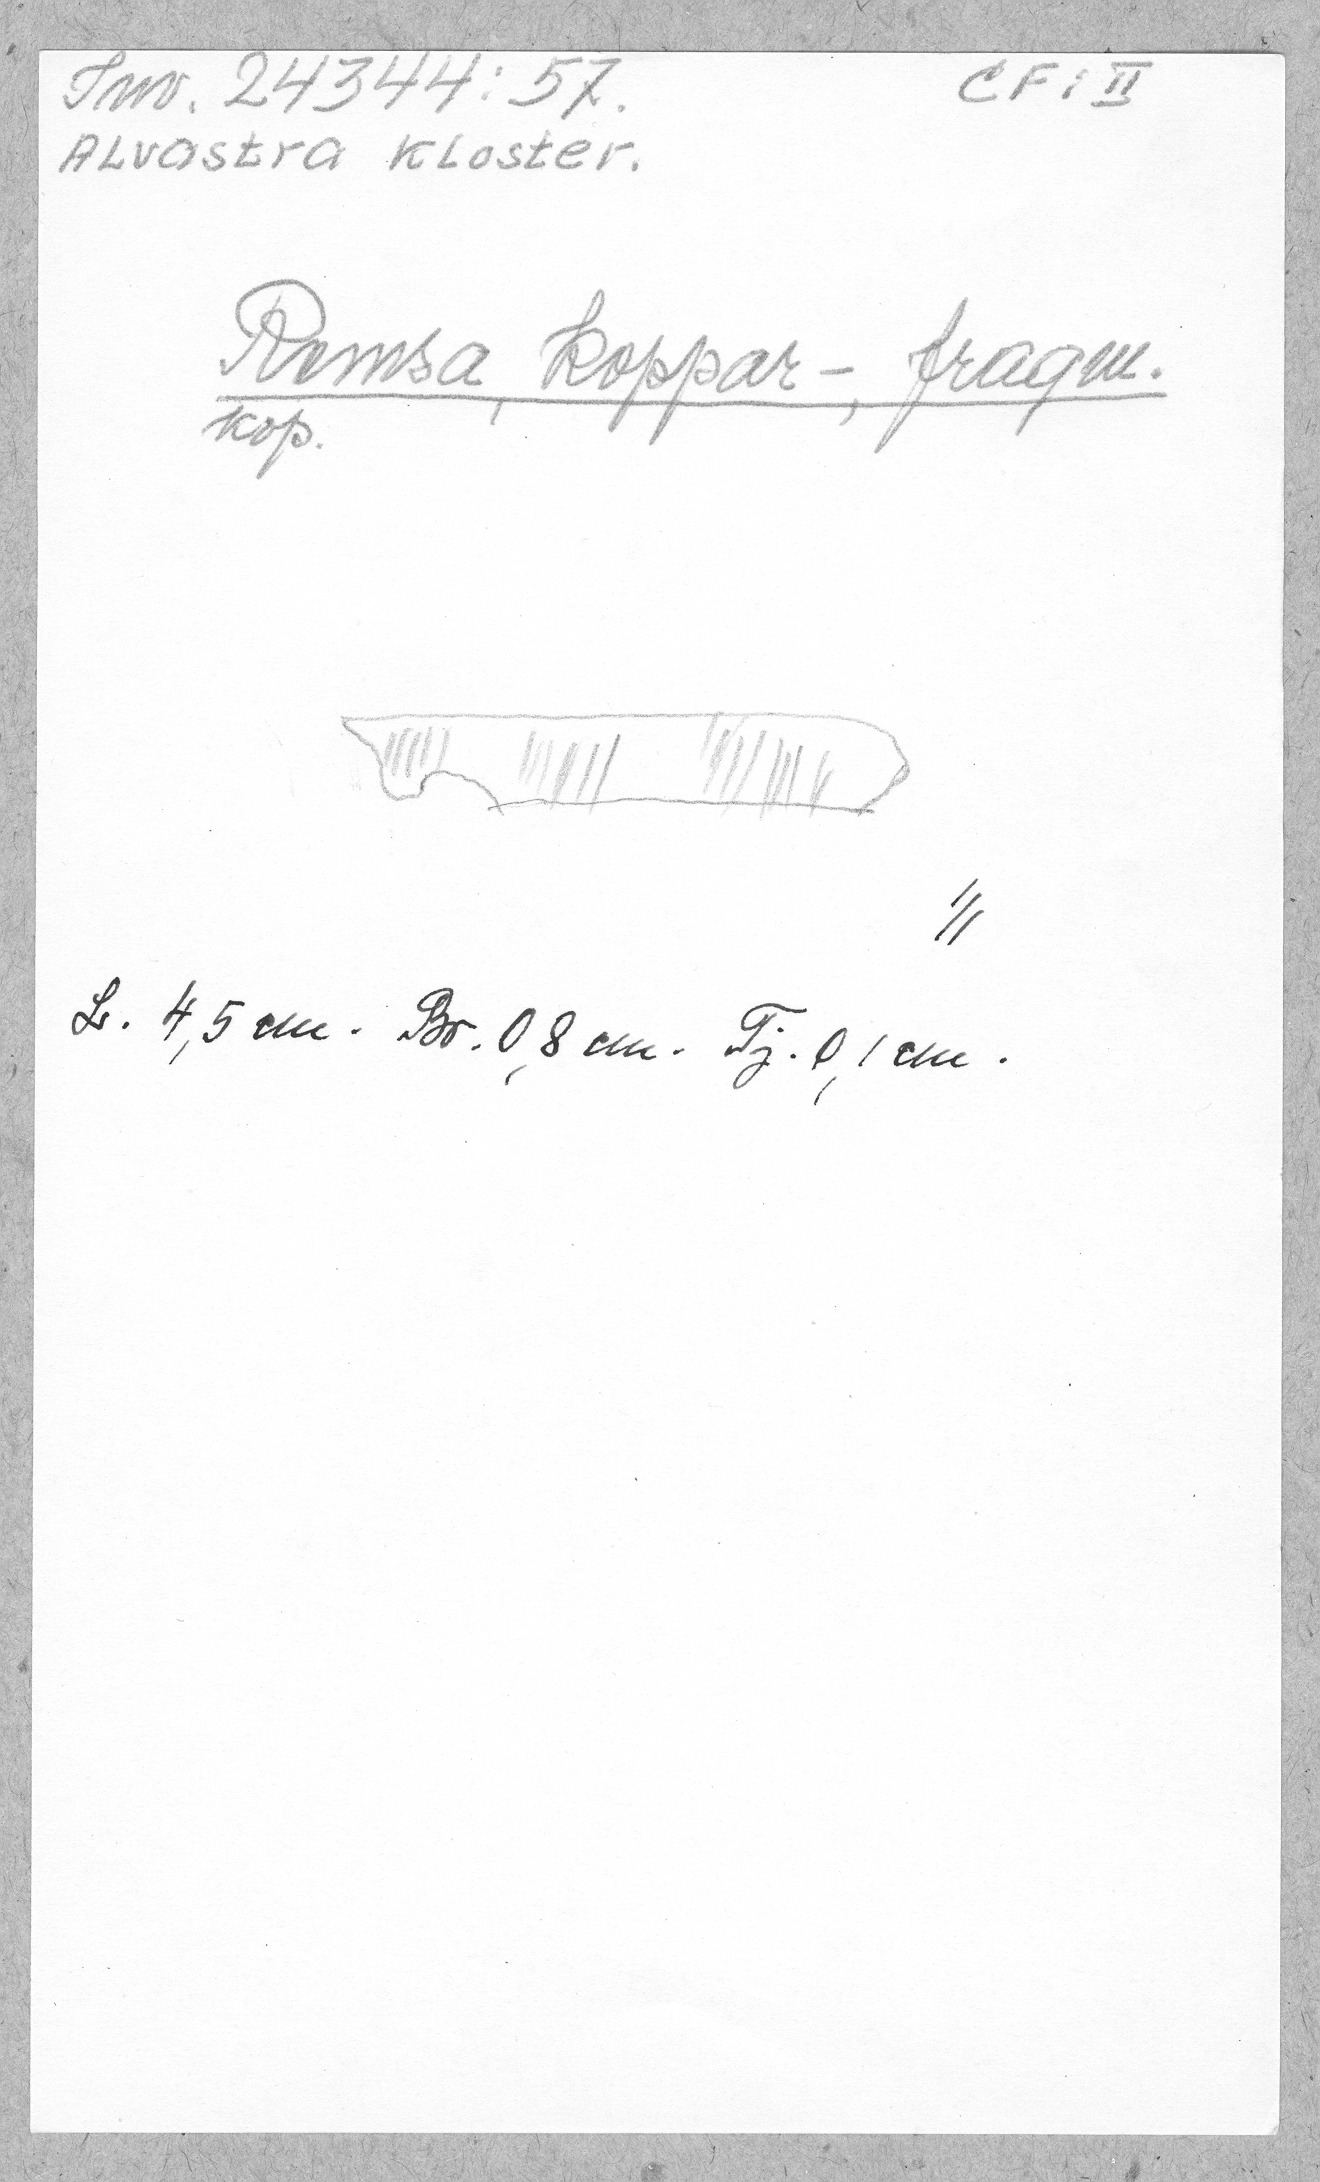 Inv. 24344:57.
CF:II
Alvastra kloster.
Remsa, koppar-, fragm.
kop.
1/1
L. 4,5 cm. Br. 0,8 cm. Tj. 0,1 cm.